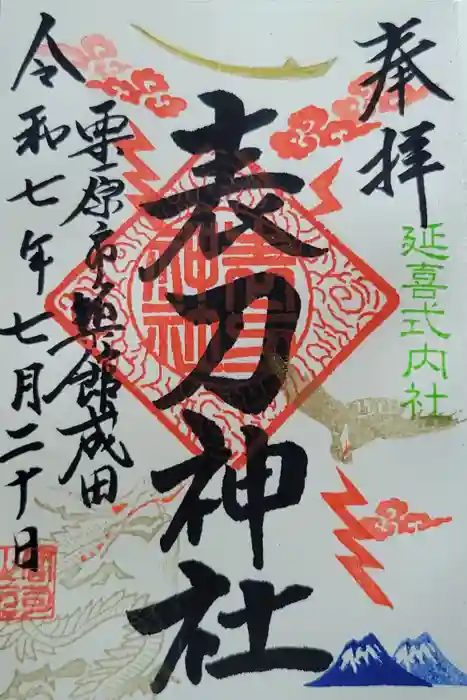 奉拝
延喜式内社
表刀神社
栗原市築館成田
令和七年七月二十日